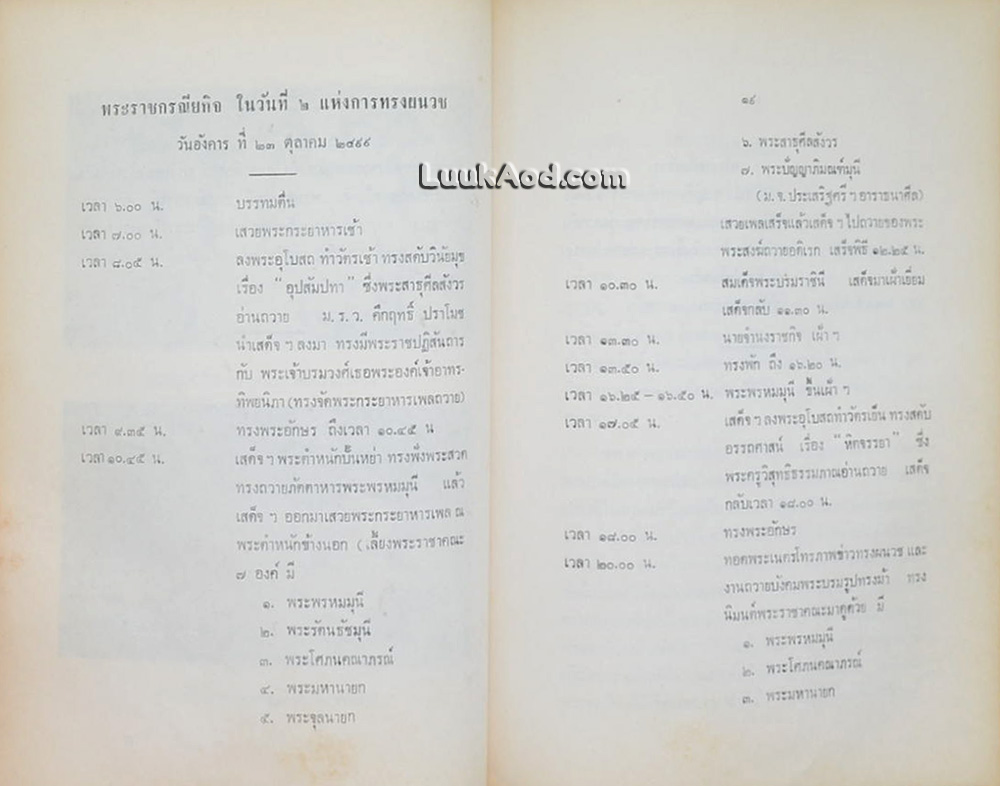 พระราชกรณียกิจ ในวันที่ ๒ แห่งการทรงผนวช
วันอังคาร ที่ ๒๓ ตุลาคม ๒๔๙๙
เวลา ๖.๐๐ น. บรรทมตื่น
เวลา ๗.๐๐ น. เสวยพระกระยาหารเช้า
เวลา ๘.๐๕ น. ลงพระอุโบสถ ทำวัตรเช้า ทรงสดับวินัยมุข
เรื่อง "อุปสัมปทา" ซึ่งพระสาธุศีลสังวร
อ่านถวาย ม.ร.ว. คึกฤทธิ์ ปราโมช
นำเสด็จ ฯ ลงมา ทรงมีพระราชปฏิสันถาร
กับ พระเจ้าบรมวงศ์เธอพระองค์เจ้าอาทร-
ทิพยนิภา (ทรงจัดพระกระยาหารเพลถวาย)
เวลา ๙.๓๕ น. ทรงพระอักษร ถึงเวลา ๑๐.๔๕ น
เวลา ๑๐.๔๕ น. เสด็จ ฯ พระตำหนักปั้นหย่า ทรงฟังพระสวด
ทรงถวายภัตตาหารพระพรหมมุนี แล้ว
เสด็จ ฯ ออกมาเสวยพระกระยาหารเพล ณ
พระตำหนักข้างนอก (เลี้ยงพระราชาคณะ
๗ องค์ มี
๑. พระพรหมมุนี
๒. พระรัตนธัชมุนี
๓. พระโศภนคณาภรณ์
๔. พระมหานายก
๕. พระจุลนายก
๑๙
๖. พระสาธุศีลสังวร
๗. พระปัญญาภิมณฑ์มุนี
(ม.จ. ประเสริฐศรี ฯ อาราธนาศีล)
เสวยเพลเสร็จแล้วเสด็จ ฯ ไปถวายของพระ
พระสงฆ์ถวายอดิเรก เสร็จพิธี ๑๒.๒๕ น.
เวลา ๑๐.๓๐ น. สมเด็จพระบรมราชินี เสด็จมาเฝ้าเยี่ยม
เสด็จกลับ ๑๑.๓๐ น.
เวลา ๑๓.๓๐ น. นายจำนงราชกิจ เฝ้า ฯ
เวลา ๑๓.๕๐ น. ทรงพัก ถึง ๑๖.๒๐ น.
เวลา ๑๖.๒๕ – ๑๖.๕๐ น. พระพรหมมุนี ขึ้นเฝ้า ฯ
เวลา ๑๗.๐๕ น. เสด็จ ฯ ลงพระอุโบสถทำวัตรเย็น ทรงสดับ
อรรถศาสน์ เรื่อง "หิตจรรยา" ซึ่ง
พระครูวิสุทธิธรรมภาณอ่านถวาย เสด็จ
กลับเวลา ๑๘.๐๐ น.
เวลา ๑๘.๐๐ น. ทรงพระอักษร
เวลา ๒๐.๐๐ น. ทอดพระเนตรโทรภาพข่าวทรงผนวช และ
งานถวายบังคมพระบรมรูปทรงม้า ทรง
นิมนต์พระราชาคณะมาดูด้วย มี
๑. พระพรหมมุนี
๒. พระโศภนคณาภรณ์
๓. พระมหานายก
LuukAod.com